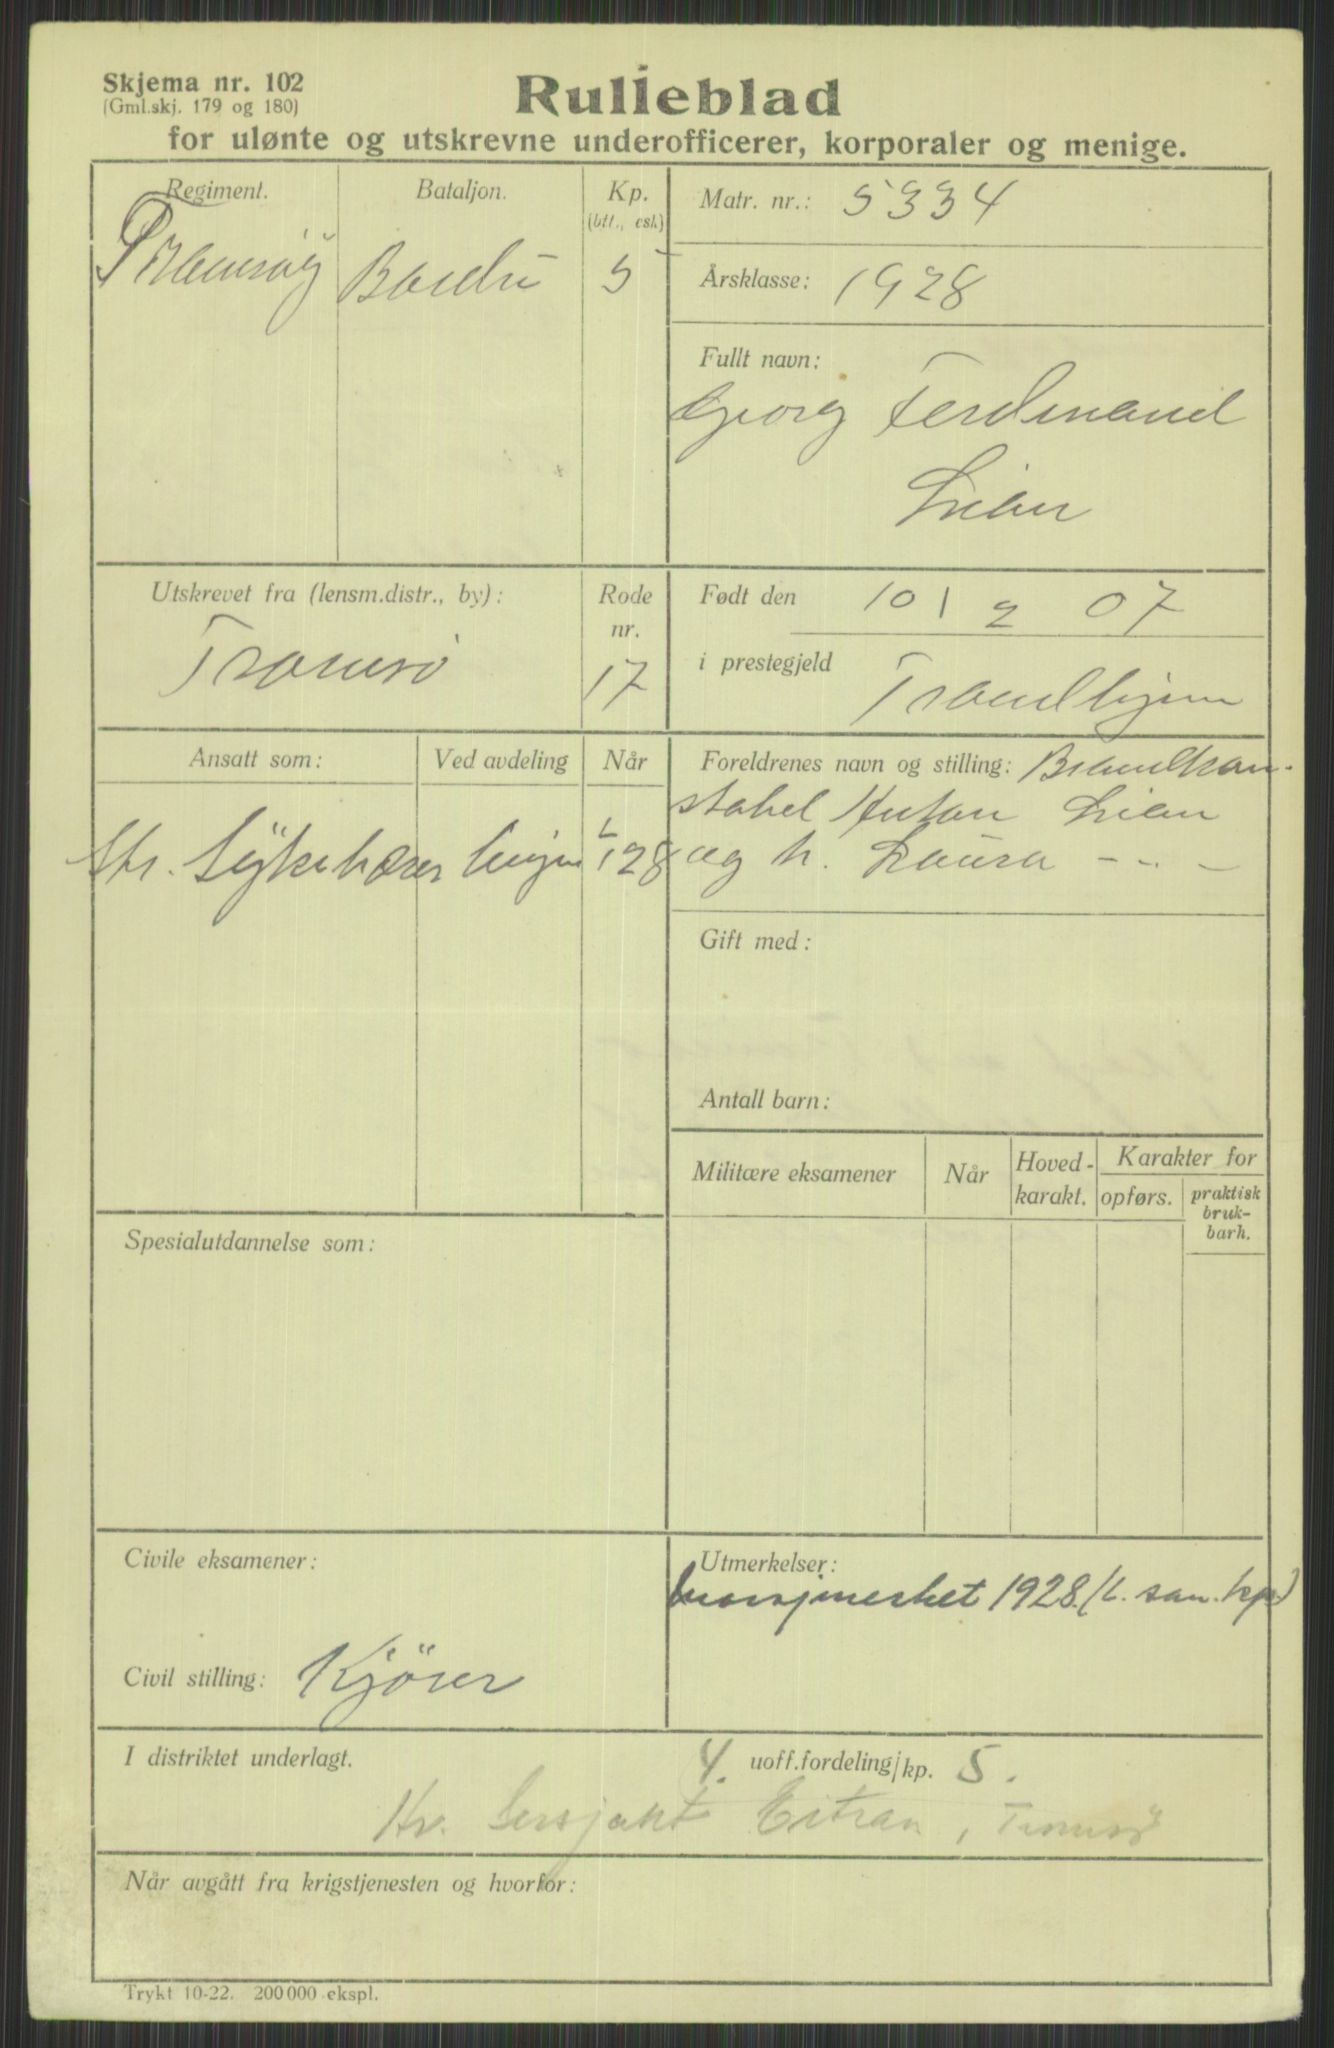 Skjema nr. 102
(Gml.skj. 179 og 180)
Rulleblad
for ulønte og utskrevne underofficerer, korporaler og menige.
Regiment.
Bataljon.
Kp.
(btt., esk)
Bardu
5
Matr. nr.: 5334
Årsklasse: 1928
Fullt navn:
Georg Ferdinand
Lian
Utskrevet fra (lensm.distr., by):
Tromsö
Rode
nr.
17
Født den 10 1 2 07
i prestegjeld Trondhjem
Ansatt som:
Ved avdeling
Når
Sykebærer
28
Foreldrenes navn og stilling: Brandkon-
stabel Anton Lian
og h. Laura - - -
Gift med:
Antall barn:
Militære eksamener
Når
Hoved-
karakt.
Karakter for
opførs.
praktisk
bruk-
barh.
Spesialutdannelse som:
Civile eksamener:
Civil stilling: Kjörer
Utmerkelser:
marsjmerket 1928. (L. san. kp.)
I distriktet underlagt.
4. uoff.fordeling/kp. 5.
Hr. Sersjant Eitran, Tromsö
Når avgått fra krigstjenesten og hvorfor:
Trykt 10-22. 200 000 ekspl.